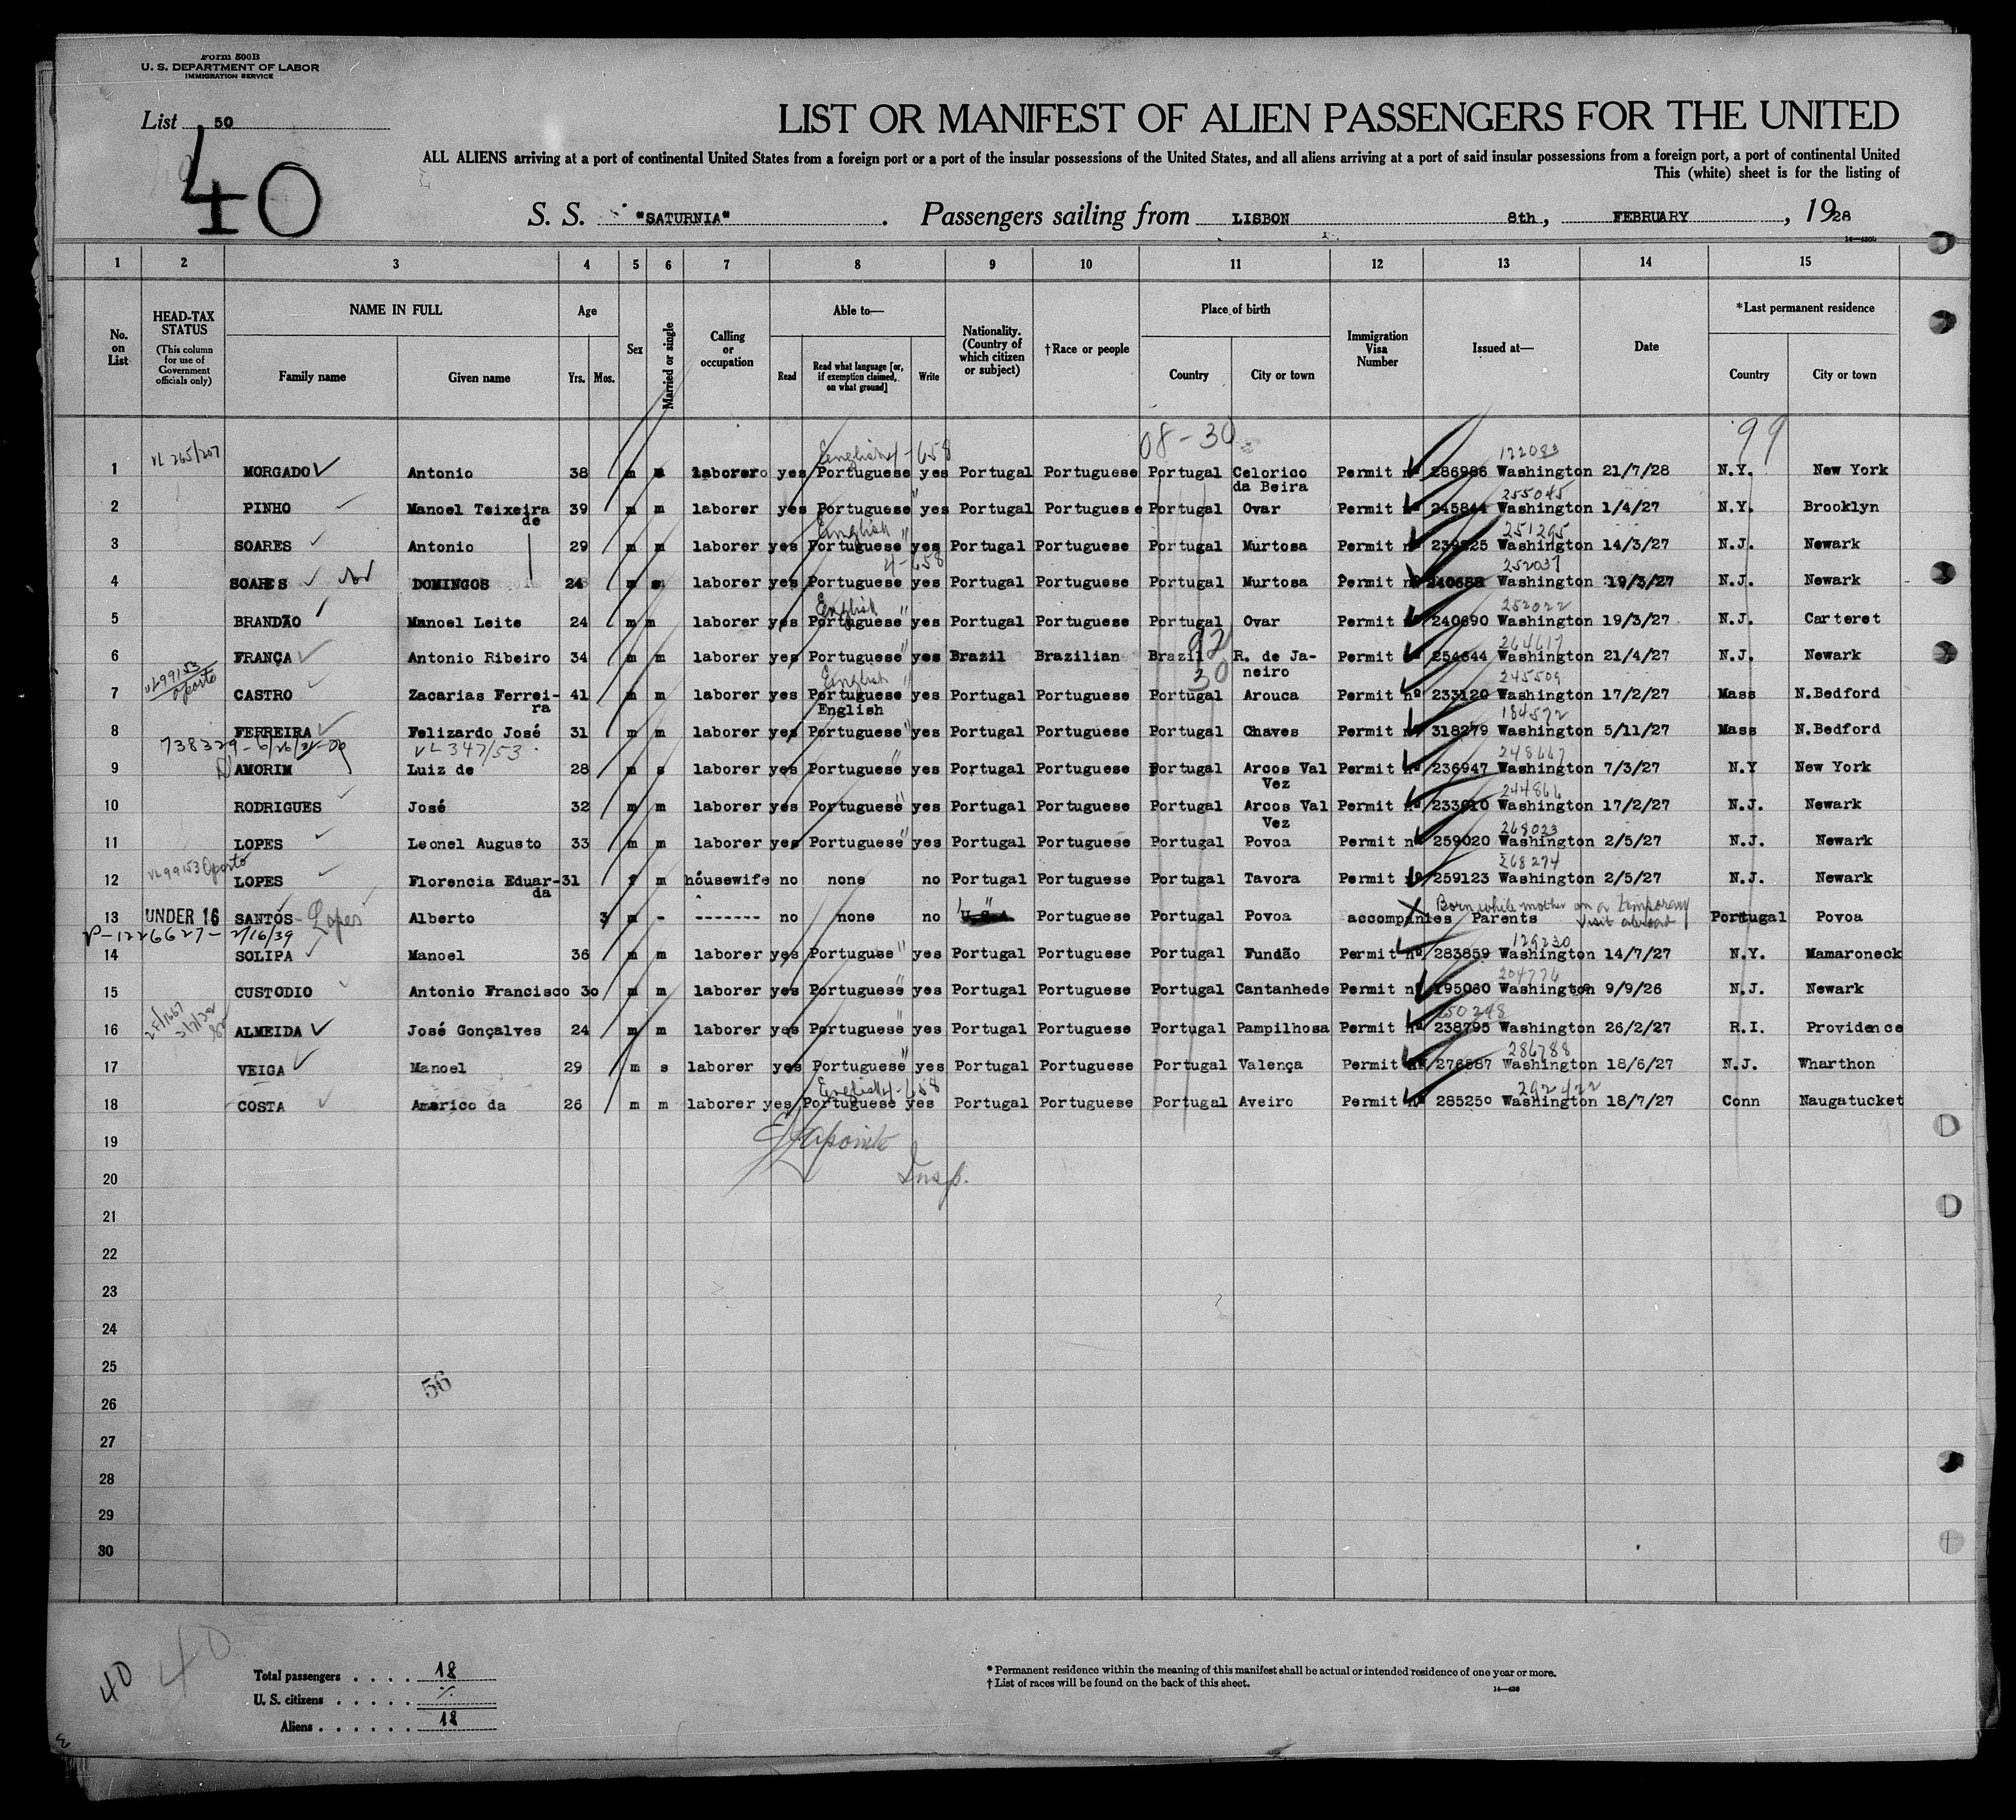 Form 500B
U. S. DEPARTMENT OF LABOR
IMMIGRATION SERVICE
List 50
40
LIST OR MANIFEST OF ALIEN PASSENGERS FOR THE UNITED
ALL ALIENS arriving at a port of continental United States from a foreign port or a port of the insular possessions of the United States, and all aliens arriving at a port of said insular possessions from a foreign port, a port of continental United
This (white) sheet is for the listing of
S. S. "SATURNIA". Passengers sailing from LISBON 8th, FEBRUARY, 1928
1 2 3 4 5 6 7 8 9 10 11 12 13 14 15
No. on List
HEAD-TAX STATUS (This column for use of Government officials only)
NAME IN FULL Family name Given name
Age Yrs. Mos.
Sex
Married or single
Calling or occupation
Able to— Read Read what language [or, if exemption claimed, on what ground] Write
Nationality. (Country of which citizen or subject)
†Race or people
Place of birth Country City or town
Immigration Visa Number
Issued at—
Date
*Last permanent residence Country City or town
VL 265/207 English 4-658 08-30 122093 99
1 MORGADO Antonio 38 m laborer yes Portuguese yes Portugal Portuguese Portugal Celorico da Beira Permit nº 286986 Washington 21/7/28 N.Y. New York
255045
2 PINHO Manoel Teixeira de 39 m m laborer yes Portuguese " yes Portugal Portuguese Portugal Ovar Permit nº 245844 Washington 1/4/27 N.Y. Brooklyn
English 251295
3 SOARES Antonio 29 m m laborer yes Portuguese " yes Portugal Portuguese Portugal Murtosa Permit nº 239825 Washington 14/3/27 N.J. Newark
4-658 252037
4 SOARES DOMINGOS 24 m laborer yes Portuguese yes Portugal Portuguese Portugal Murtosa Permit nº 240688 Washington 19/3/27 N.J. Newark
English 252022
5 BRANDÃO Manoel Leite 24 m m laborer yes Portuguese " yes Portugal Portuguese Portugal Ovar Permit nº 240690 Washington 19/3/27 N.J. Carteret
92 264617
6 FRANÇA Antonio Ribeiro 34 m m laborer yes Portuguese " yes Brazil Brazilian Brazil R. de Janeiro Permit nº 254644 Washington 21/4/27 N.J. Newark
VL99153 Oporto English 30 245509
7 CASTRO Zacarias Ferreira 41 m m laborer yes Portuguese " yes Portugal Portuguese Portugal Arouca Permit nº 233120 Washington 17/2/27 Mass N.Bedford
English 184572
8 FERREIRA Felizardo José 31 m m laborer yes Portuguese " yes Portugal Portuguese Portugal Chaves Permit nº 318279 Washington 5/11/27 Mass N.Bedford
738329 VL 347/53 248667
9 AMORIM Luiz de 28 m s laborer yes Portuguese " yes Portugal Portuguese Portugal Arcos Val Vez Permit nº 236947 Washington 7/3/27 N.Y New York
244866
10 RODRIGUES José 32 m m laborer yes Portuguese " yes Portugal Portuguese Portugal Arcos Val Vez Permit nº 233610 Washington 17/2/27 N.J. Newark
268023
11 LOPES Leonel Augusto 33 m m laborer yes Portuguese " yes Portugal Portuguese Portugal Povoa Permit nº 259020 Washington 2/5/27 N.J. Newark
VL99153 Oporto 268274
12 LOPES Florencia Eduar-da 31 f m housewife no none no Portugal Portuguese Portugal Tavora Permit nº 259123 Washington 2/5/27 N.J. Newark
Born while mother on a temporary visit abroad
13 UNDER 16 SANTOS- Lopes Alberto 3 m - ------- no none no U.S.A Portuguese Portugal Povoa accompanies Parents Portugal Povoa
P-1226627- 2/16/39 129230
14 SOLIPA Manoel 36 m m laborer yes Portuguse " yes Portugal Portuguese Portugal Fundão Permit nº 283859 Washington 14/7/27 N.Y. Mamaroneck
204776
15 CUSTODIO Antonio Francisco 30 m m laborer yes Portuguese " yes Portugal Portuguese Portugal Cantanhede Permit nº 195060 Washington 9/9/26 N.J. Newark
250248
16 ALMEIDA José Gonçalves 24 m m laborer yes Portuguese " yes Portugal Portuguese Portugal Pampilhosa Permit nº 238795 Washington 26/2/27 R.I. Providence
286788
17 VEIGA Manoel 29 m s laborer yes Portuguese " yes Portugal Portuguese Portugal Valença Permit nº 276587 Washington 18/6/27 N.J. Wharthon
English 4-658 292422
18 COSTA Americo da 26 m m laborer yes Portuguese yes Portugal Portuguese Portugal Aveiro Permit nº 285250 Washington 18/7/27 Conn Naugatucket
19
Insp.
20
21
22
23
24
25
56
26
27
28
29
30
40 40
Total passengers . . . . 18
U. S. citizens . . . . .
Aliens . . . . . . 18
* Permanent residence within the meaning of this manifest shall be actual or intended residence of one year or more.
† List of races will be found on the back of this sheet.